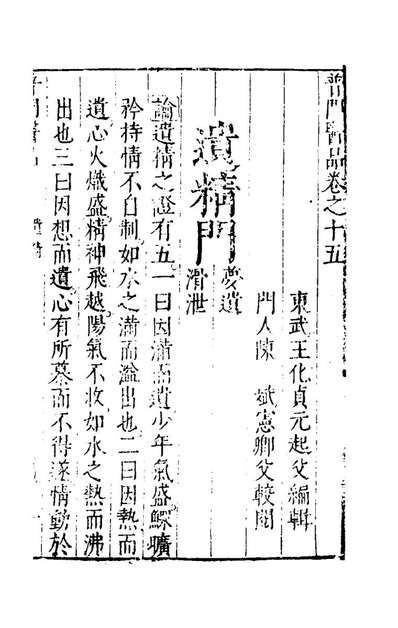 普門醫品卷之十五
東武王化貞元起父編輯
門人陳 斌憲卿父較閱
遺精門
夢遺
滑泄
論遺精之證有五一曰因滿而遺少年氣盛鰥曠
矜持情不自制如水之滿而溢出也二曰因熱而
遺心火熾盛精神飛越陽氣不收如水之熱而沸
出也三曰因想而遺心有所慕而不得遂情動於